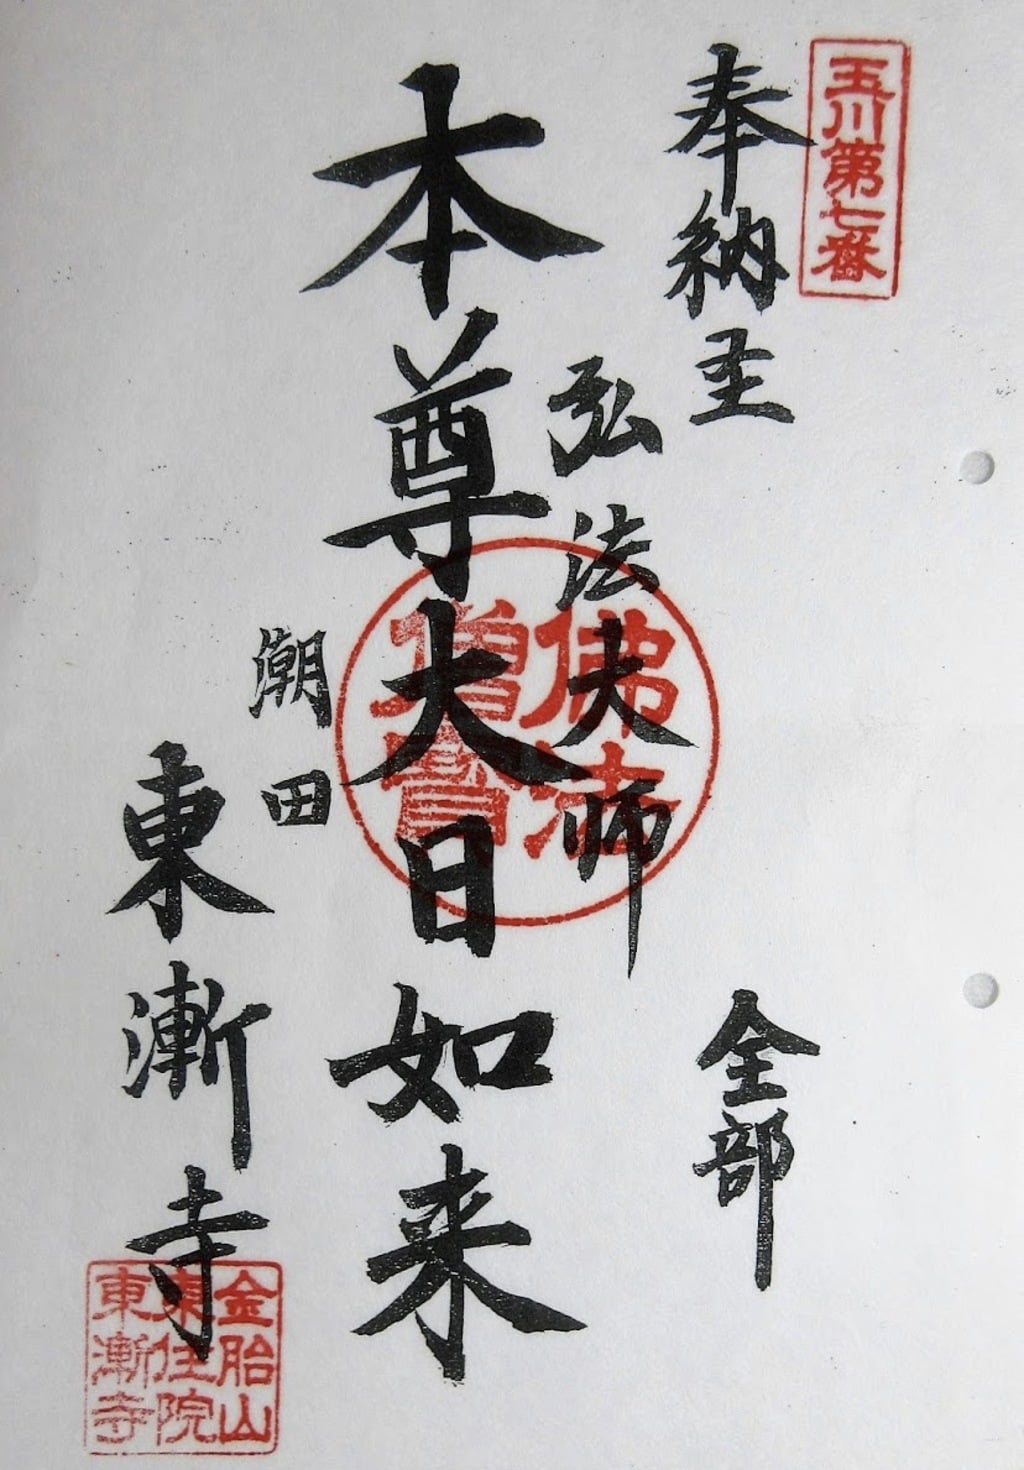 玉川第七番
奉納圣 全部
弘法大師
佛法
僧寶
本尊大日如来
潮田
東漸寺
金胎山
住院
東漸寺